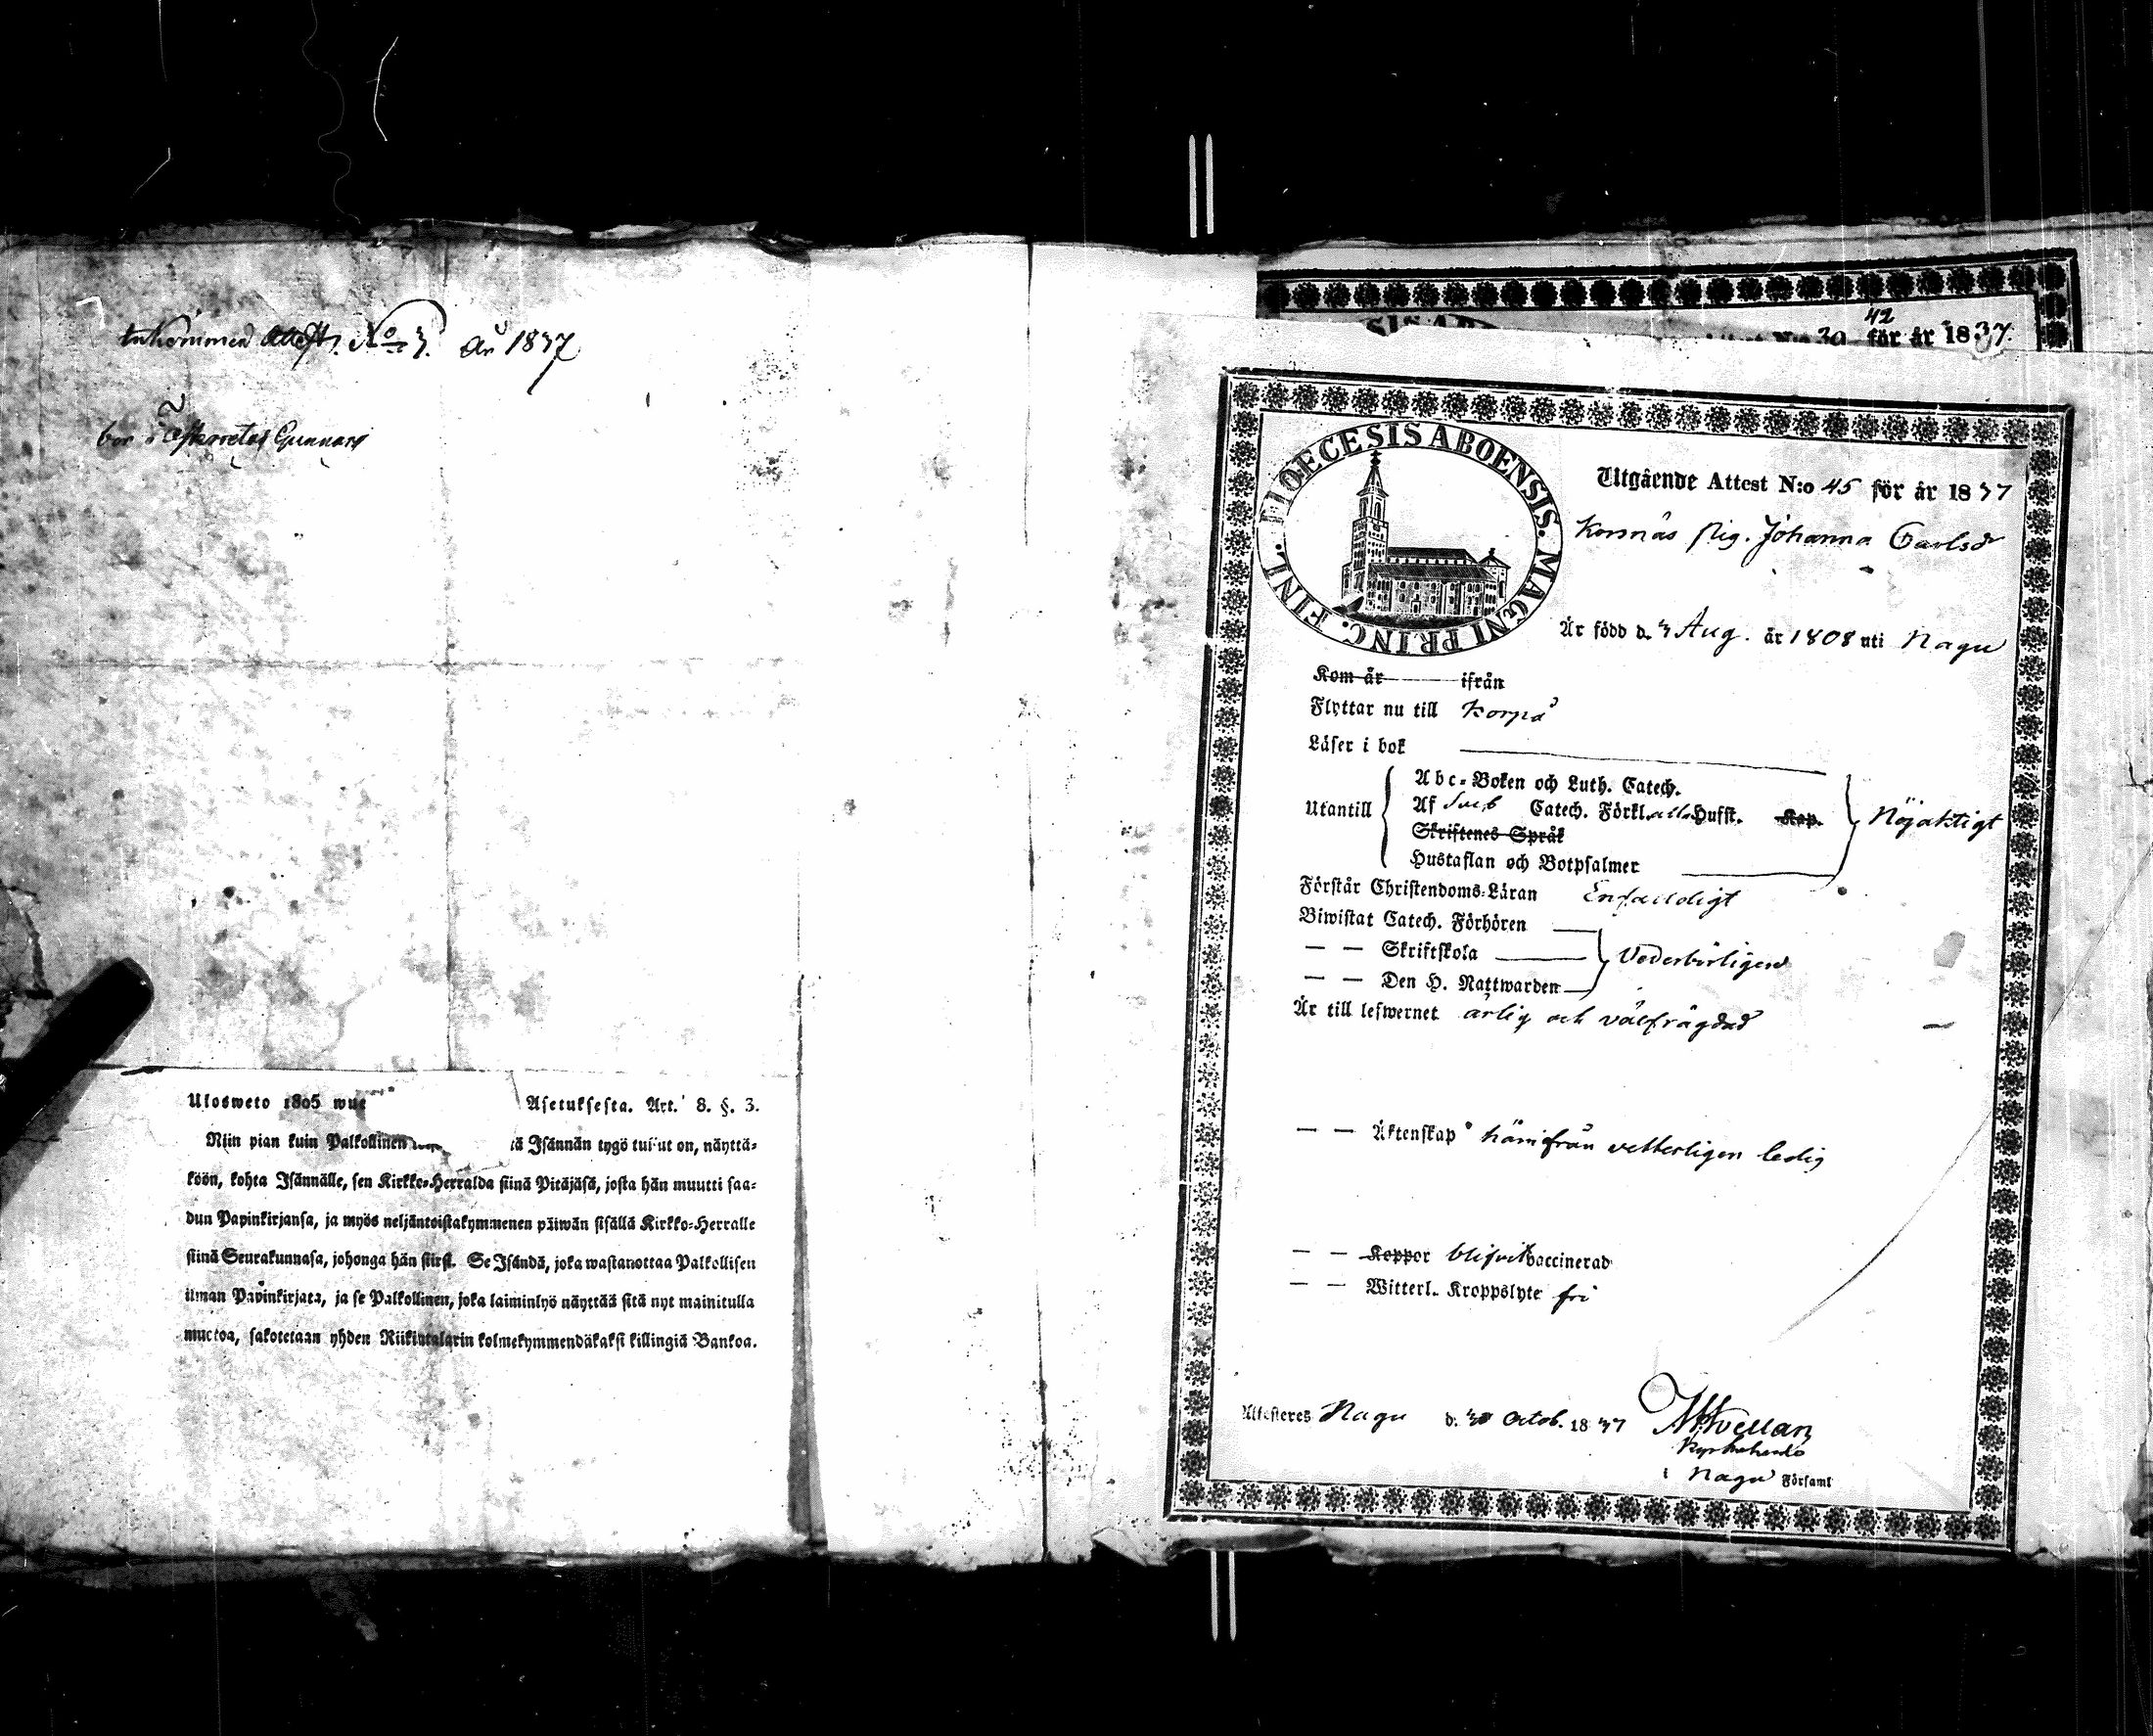 Inkommen Attest. No 3. År 1837
bor i Österretais Gunnars
Ulosweto 1805 wue Asetuksesta. Art. 8. §. 3.
Niin pian kuin Palkollinen tä Isännän tygö tullut on, näyttä-
köön, kohta Isännälle, sen Kirkko-Herralda siinä Pitäjäsä, josta hän muutti saa-
dun Papinkirjansa, ja myös neljäntoistakymmenen päiwän sisällä Kirkko-Herralle
siinä Seurakunnasa, johonga hän siirst. Se Isändä, joka wastanottaa Palkollisen
ilman Papinkirjata, ja se Palkollinen, joka laiminlyö näyttää sitä nyt mainitulla
muotoa, sakotetaan yhden Riikintalarin kolmekymmendäkaksi killingiä Bankoa.
42
30 för år 1837.
DIOECESIS ABOENSIS. MAGNI PRINC. FINL.
Utgående Attest N:o 45 för år 1837
Kornäs pig. Johanna Carlsdr
Är född d. 3 Aug. år 1808 uti Nagu
Kom år ifrån
Flyttar nu till Korpå
Läser i bok
Abc-Boken och Luth. Catech.
Utantill Af Sveb Catech. Förkl. alla Hufst. Kap. Nöjaktigt
Skriftenes Språk
Hustaflan och Botpsalmer
Förstår Christendoms-Läran Enfaldigt
Biwistat Catech. Förhören
— — Skriftskola Vederbörligen
— — Den H. Nattwarden
Är till lefwernet ärlig och välfrägdad
— — Äktenskap härifrån vetterligen ledig
— — Koppor blifvit vaccinerad
— — Witterl. Kroppslyte fri
Attesteres Nagu d. 30 Octob. 1837
Kyrkoherde
i Nagu Församl